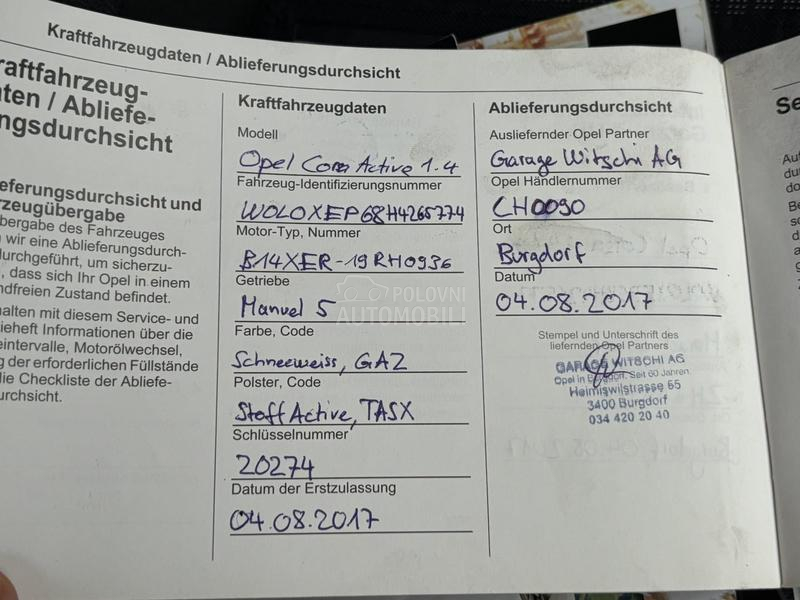 Kraftfahrzeugdaten / Ablieferungsdurchsicht
raftfahrzeug-
aten / Abliefe-
ngsdurchsicht
eferungsdurchsicht und
rzeugübergabe
bergabe des Fahrzeuges
n wir eine Ablieferungsdurch-
durchgeführt, um sicherzu-
, dass sich Ihr Opel in einem
ndfreien Zustand befindet.
halten mit diesem Service- und
ieheft Informationen über die
eintervalle, Motorölwechsel,
g der erforderlichen Füllstände
die Checkliste der Abliefe-
urchsicht.
Kraftfahrzeugdaten
Modell
Opel Corsa Active 1.4
Fahrzeug-Identifizierungsnummer
W0L0XEP68H4265774
Motor-Typ, Nummer
B14XER-19RH0936
Getriebe
Manuel 5
Farbe, Code
Schneeweiss, GAZ
Polster, Code
Stoff Active, TASX
Schlüsselnummer
20274
Datum der Erstzulassung
04.08.2017
Ablieferungsdurchsicht
Ausliefernder Opel Partner
Garage Witschi AG
Opel Händlernummer
CH0090
Ort
Burgdorf
Datum
04.08.2017
Stempel und Unterschrift des
liefernden Opel Partners
GARAGE WITSCHI AG
Opel in Burgdorf. Seit 60 Jahren.
Heimiswilstrasse 55
3400 Burgdorf
034 420 20 40
POLOVNI
AUTOMOBILI
Se